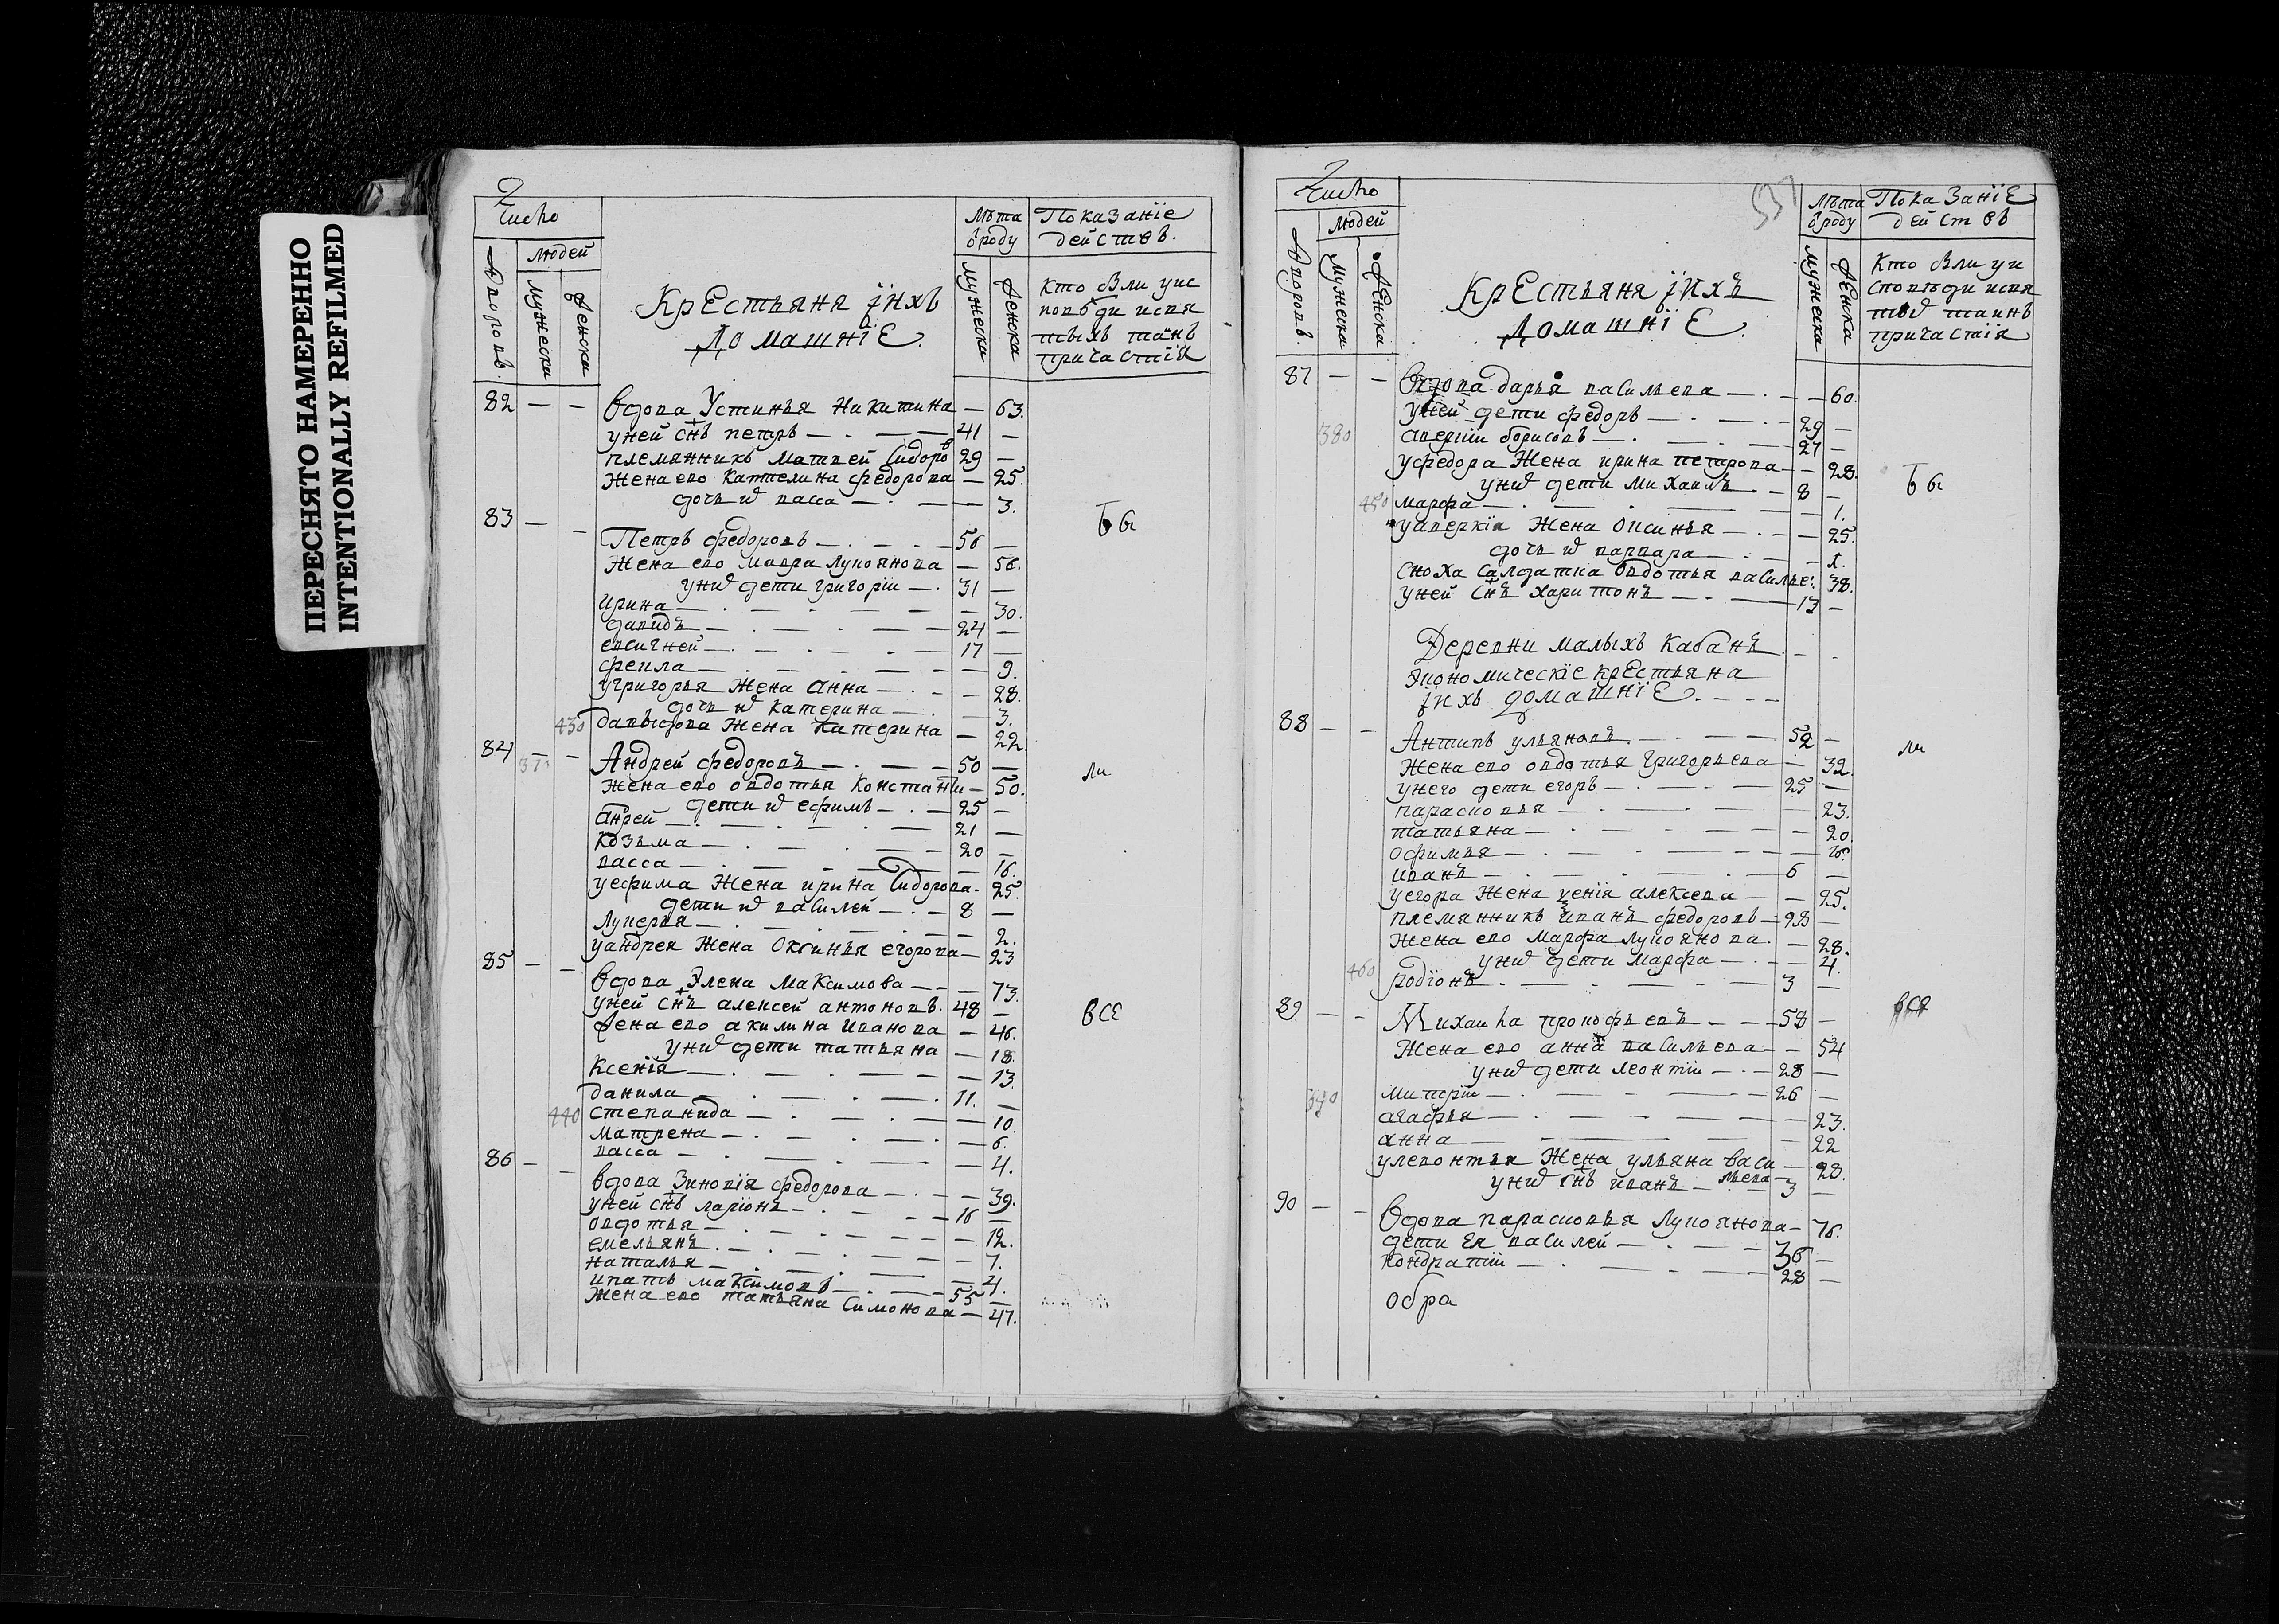 ПЕРЕСНЯТО НАМЕРЕННО
INTENTIONALLY REFILMED
Число
Людей
Дворовъ.
мужеска
женска
Крестьяня їихъ
Домашнїе
Лѣта
ѿроду
мужеска
женска
Показанїе
действъ.
кто былъ уис
повѣди исвя
тыхъ таинъ
причастїя
82 — — вдова Устинья Никитина — 63.
уней снъ петръ — 41 —
племянникъ Матвей Сидоровъ 29 —
жена ево Каттелина федорова — 25.
дочь ѿ васса — 3.
83 — — Петръ федоровъ — 56 —
бы
жена ево Мавра Лукоянова — 56.
униѿ дети григорїи — 31 —
ирина — 30.
давидъ — 24 —
евсигней — 17 —
фекла — 9.
угригорья жена анна — 28.
дочь ѿ катерина — 3.
430 давыдова жена Катерина — 22.
84 37 — Андрей федоровъ — 50 —
ли
жена ево овдотья Константи — 50.
дети ѿ ефимъ — 25 —
андрей — 21 —
козьма — 20 —
васса — 16.
уефима жена ирина Сидорова — 25.
дети ѿ василей — 8 —
Лукерья — 2.
уандрея жена Оксинья егорова — 23
85 — — вдова Элена Максимова — 73.
уней снъ алексей антоновъ. 48 —
все
жена ево акилина иванова — 46.
униѿ дети татьяна — 18.
ксенїя — 13.
данила — 11. —
440 степанида — 10.
матрена — 6.
васса — 4.
86 — — вдова Зиновїя федорова — 39.
уней снъ ларїонъ — 16 —
овдотья — 12.
емельянъ — 7.
наталья — 4.
ипатъ максимовъ — 55 —
жена ево татьяна Симонова — 47.
Число
Людей
Дворовъ.
мужеска
женска
Крестьяня їихъ
Домашнїе
537
Лѣта
ѿроду
мужеска
женска
Показанїе
действъ
кто были уи
споведи исвя
тыѿ таинъ
причастїя
87 — — вдова дарья васильева — 60.
уней дети федоръ — 29 —
380 аверкїи борисовъ — 27 —
уфедора жена ирина петрова — 28.
униѿ дети михаилъ — 8 —
бы
450 марфа — 1.
уаверкїя жена оксинья — 25.
дочь ѿ варвара — 1.
сноха салдатка овдотья василье: 38.
уней снъ харитонъ — 13 —
Деревни малыхъ кабанъ
экономическїе крестьяна
їихъ домашнїе
88 — — Антипъ ульяновъ — 52 —
ли
жена ево овдотья григорьева — 32.
унего дети егоръ — 25 —
парасковья — 23.
татьяна — 20.
офимья — 16.
иванъ — 6 —
уегора жена ксенїя алексева — 25.
племянникъ иванъ федоровъ — 28 —
жена ево марфа лукоянова. — 28.
униѿ дети марфа — 4.
460 родїонъ — 3 —
89 — — Михаила прокофьевъ — 58 —
все
жена ево анна васильева — 54
униѿ дети леонтїи — 28 —
390 митрїи — 26 —
агафья — 23.
анна — 22
улевонтья жена ульяна васильева — 28.
униѿ снъ иванъ — 3 —
90 — — вдова парасковья Лукоянова — 76.
дети ея василей — 36 —
кондратїи — 28 —
обра